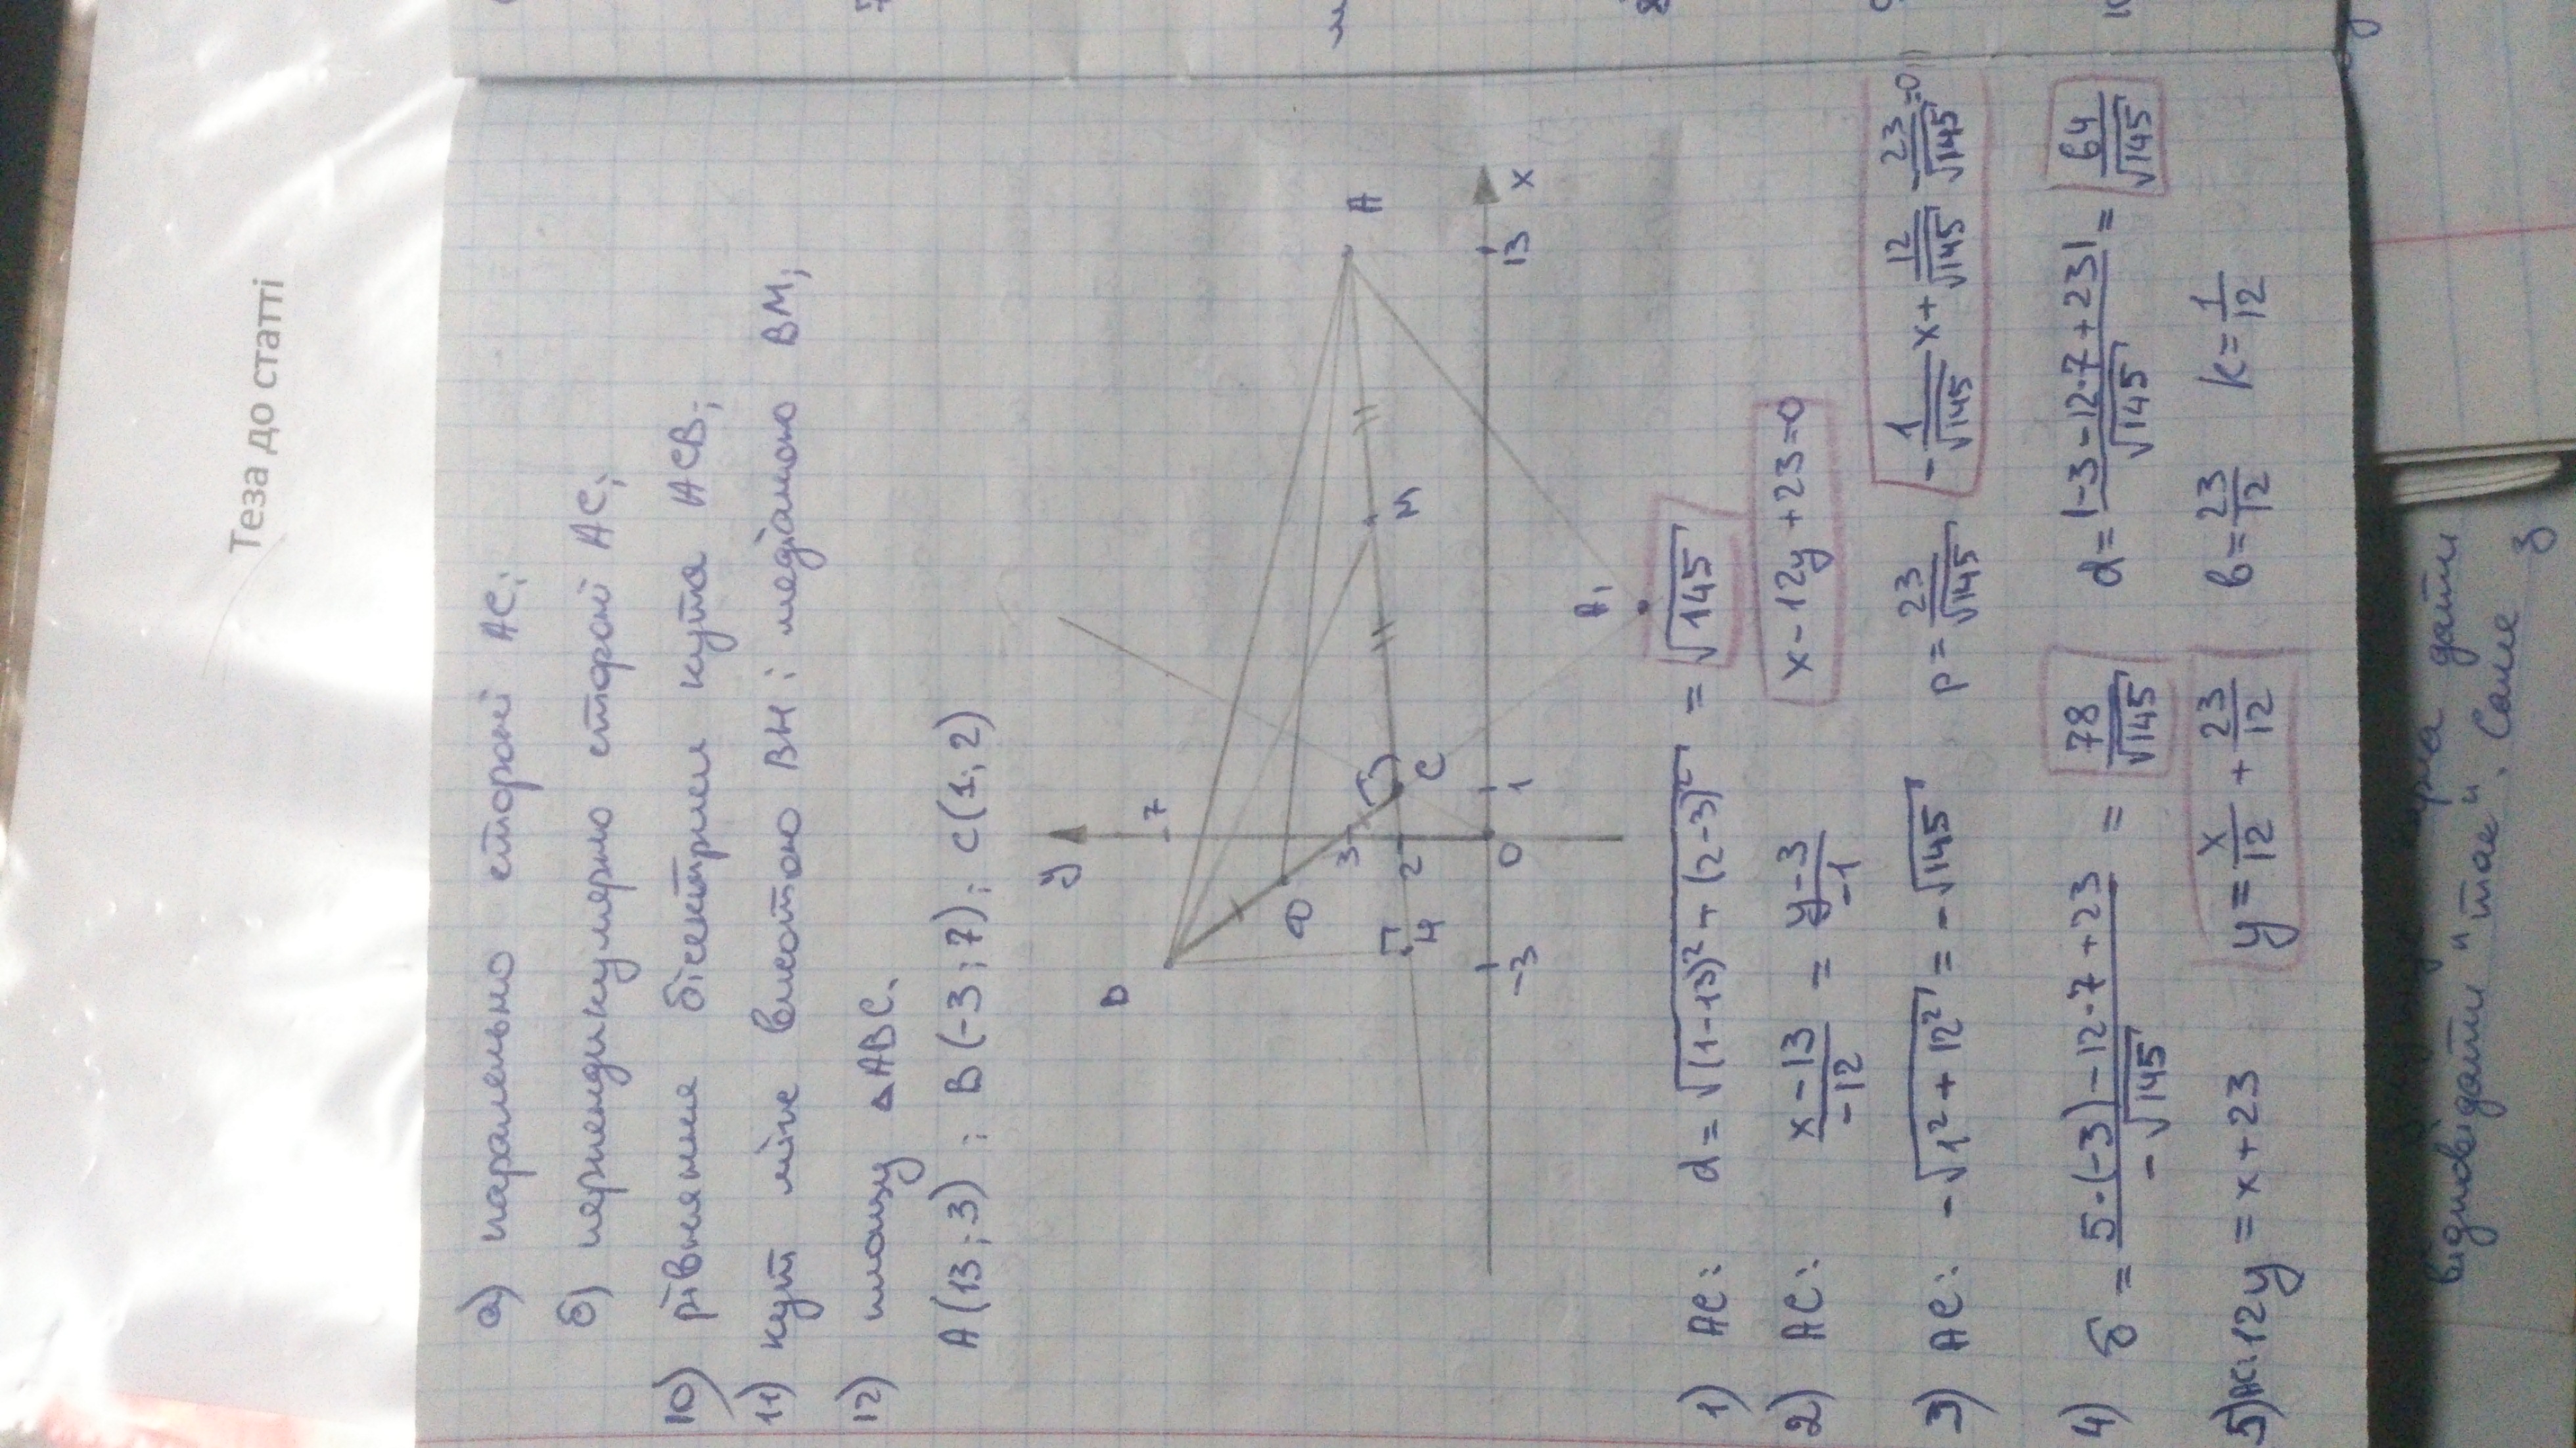 Теза до статті
а) паралельно стороні AC;
б) перпендикулярно стороні AC;
10) рівняння бісектриси кута ACB;
11) кут між висотою BH і медіаною BM;
12) площу △ABC.
A(13;3); B(-3;7); C(1;2)
y
B
7
D
3
A
M
2
H
C
-3
0
1
13
x
A₁
1) AC: d = √((1-13)² + (2-3)²) = √145
2) AC: (x-13)/(-12) = (y-3)/(-1) x - 12y + 23 = 0
3) AC: -√(1² + 12²) = -√145 p = 23/√145 -1/√145 x + 12/√145 23/√145 = 0
4) δ = (5·(-3) - 12·7 + 23)/(-√145) = 78/√145 d = |-3 - 12·7 + 23|/√145 = 64/√145
5) AC: 12y = x + 23 y = x/12 + 23/12 b = 23/12 k = 1/12
дати
відповідати "так". Саме з